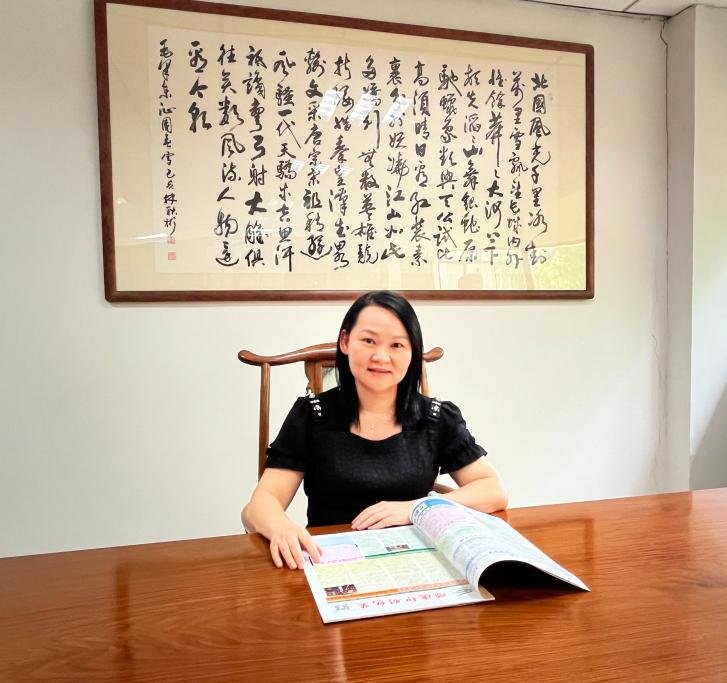 北國風光千里冰封
萬里雪飄望長城内外
惟餘莽々大河上下
頓失滔々山舞銀蛇原
馳蠟象欲與天公試比
高須晴日看紅裝素
裹分外妖嬈江山如此
多嬌引無數英雄競
折腰惜秦皇漢武略
輸文采唐宗宋祖稍遜
風騷一代天驕成吉思汗
祇識彎弓射大雕俱
往矣數風流人物還
看今朝
毛澤東沁園春雪